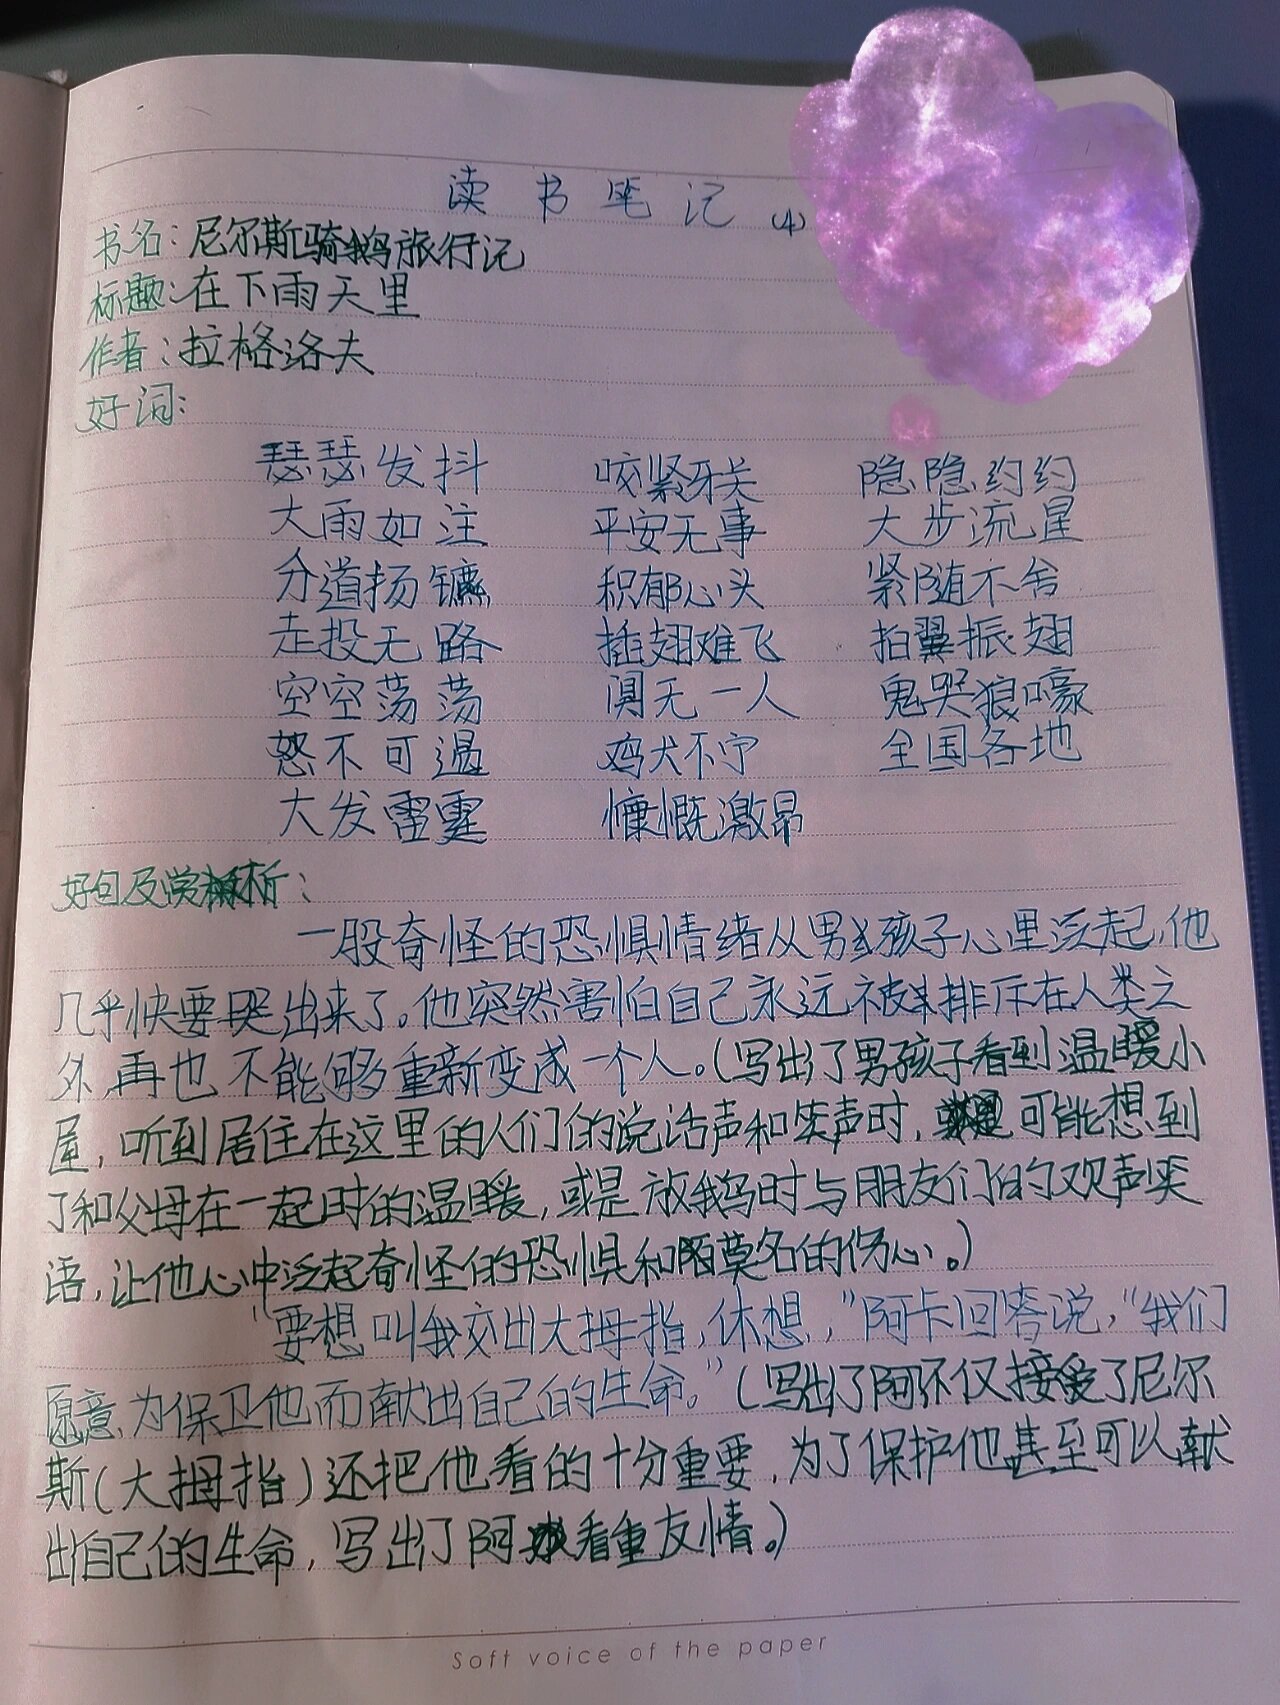 读书笔记(4)
书名:尼尔斯骑鹅旅行记
标题:在下雨天里
作者:拉格洛夫
好词:
瑟瑟发抖 咬紧牙关 隐隐约约
大雨如注 平安无事 大步流星
分道扬镳 积郁心头 紧随不舍
走投无路 插翅难飞 拍翼振翅
空空荡荡 阒无一人 鬼哭狼嚎
怒不可遏 鸡犬不宁 全国各地
大发雷霆 慷慨激昂
好句及赏析:
一股奇怪的恐惧情绪从男孩子心里泛起,他
几乎快要哭出来了。他突然害怕自己永远被排斥在人类之
外,再也不能够重新变成一个人。(写出了男孩子看到温暖小
屋,听到居住在这里的人们的说话声和笑声时,可能想到
了和父母在一起时的温暖,或是放鹅时与朋友们的欢声笑
语,让他心中泛起奇怪的恐惧和陌莫名的伤心。)
“要想叫我交出大拇指,休想,”阿卡回答说,“我们
愿意为保卫他而献出自己的生命。”(写出了阿不仅接受了尼尔
斯(大拇指)还把他看的十分重要,为了保护他甚至可以献
出自己的生命,写出了阿看重友情。)
Soft voice of the paper